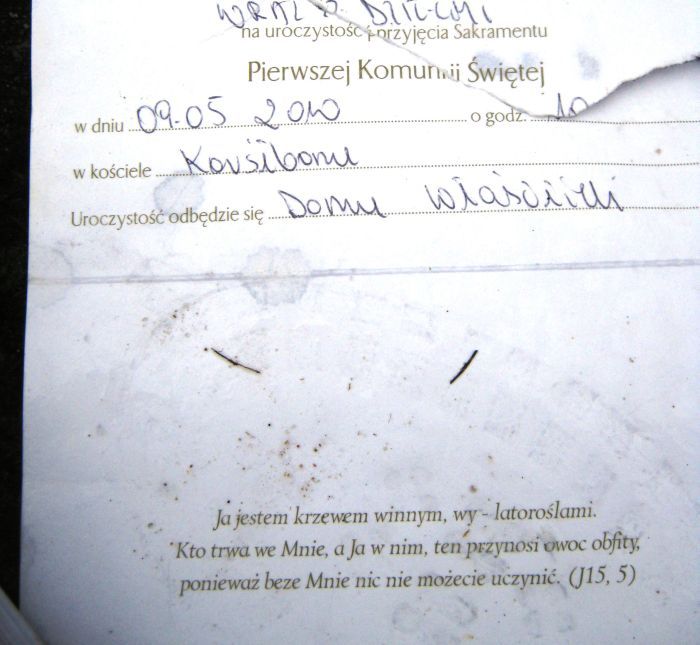 WRAZ Z DZIEĆMI
na uroczystość przyjęcia Sakramentu
Pierwszej Komunii Świętej
w dniu 09.05 2010 o godz. 10
w kościele
Uroczystość odbędzie się Domu
Ja jestem krzewem winnym, wy - latoroślami.
Kto trwa we Mnie, a Ja w nim, ten przynosi owoc obfity,
ponieważ beze Mnie nic nie możecie uczynić. (J15, 5)